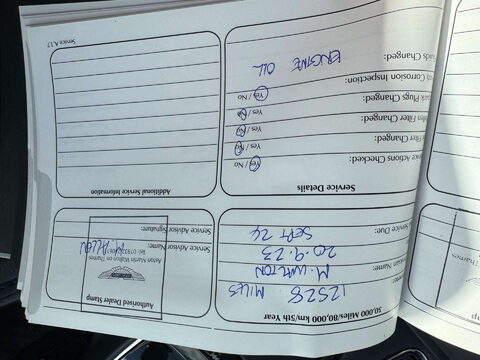 50,000 Miles/80,000 km/5th Year
12528 MILES
Name:
M. WALTON
20.9.23
Service Due:
SEPT 24
Authorised Dealer Stamp
Aston Martin Walton on Thames
Tel: 01932
Service Advisor Name:
Service Advisor Signature:
Service Details
Actions Checked:
Yes / No
Filter Changed:
Yes / No
Filter Changed:
Yes / No
Plugs Changed:
Yes / No
Corrosion Inspection:
Yes / No
Changed:
ENGINE OIL
Additional Service Information
Service A.17